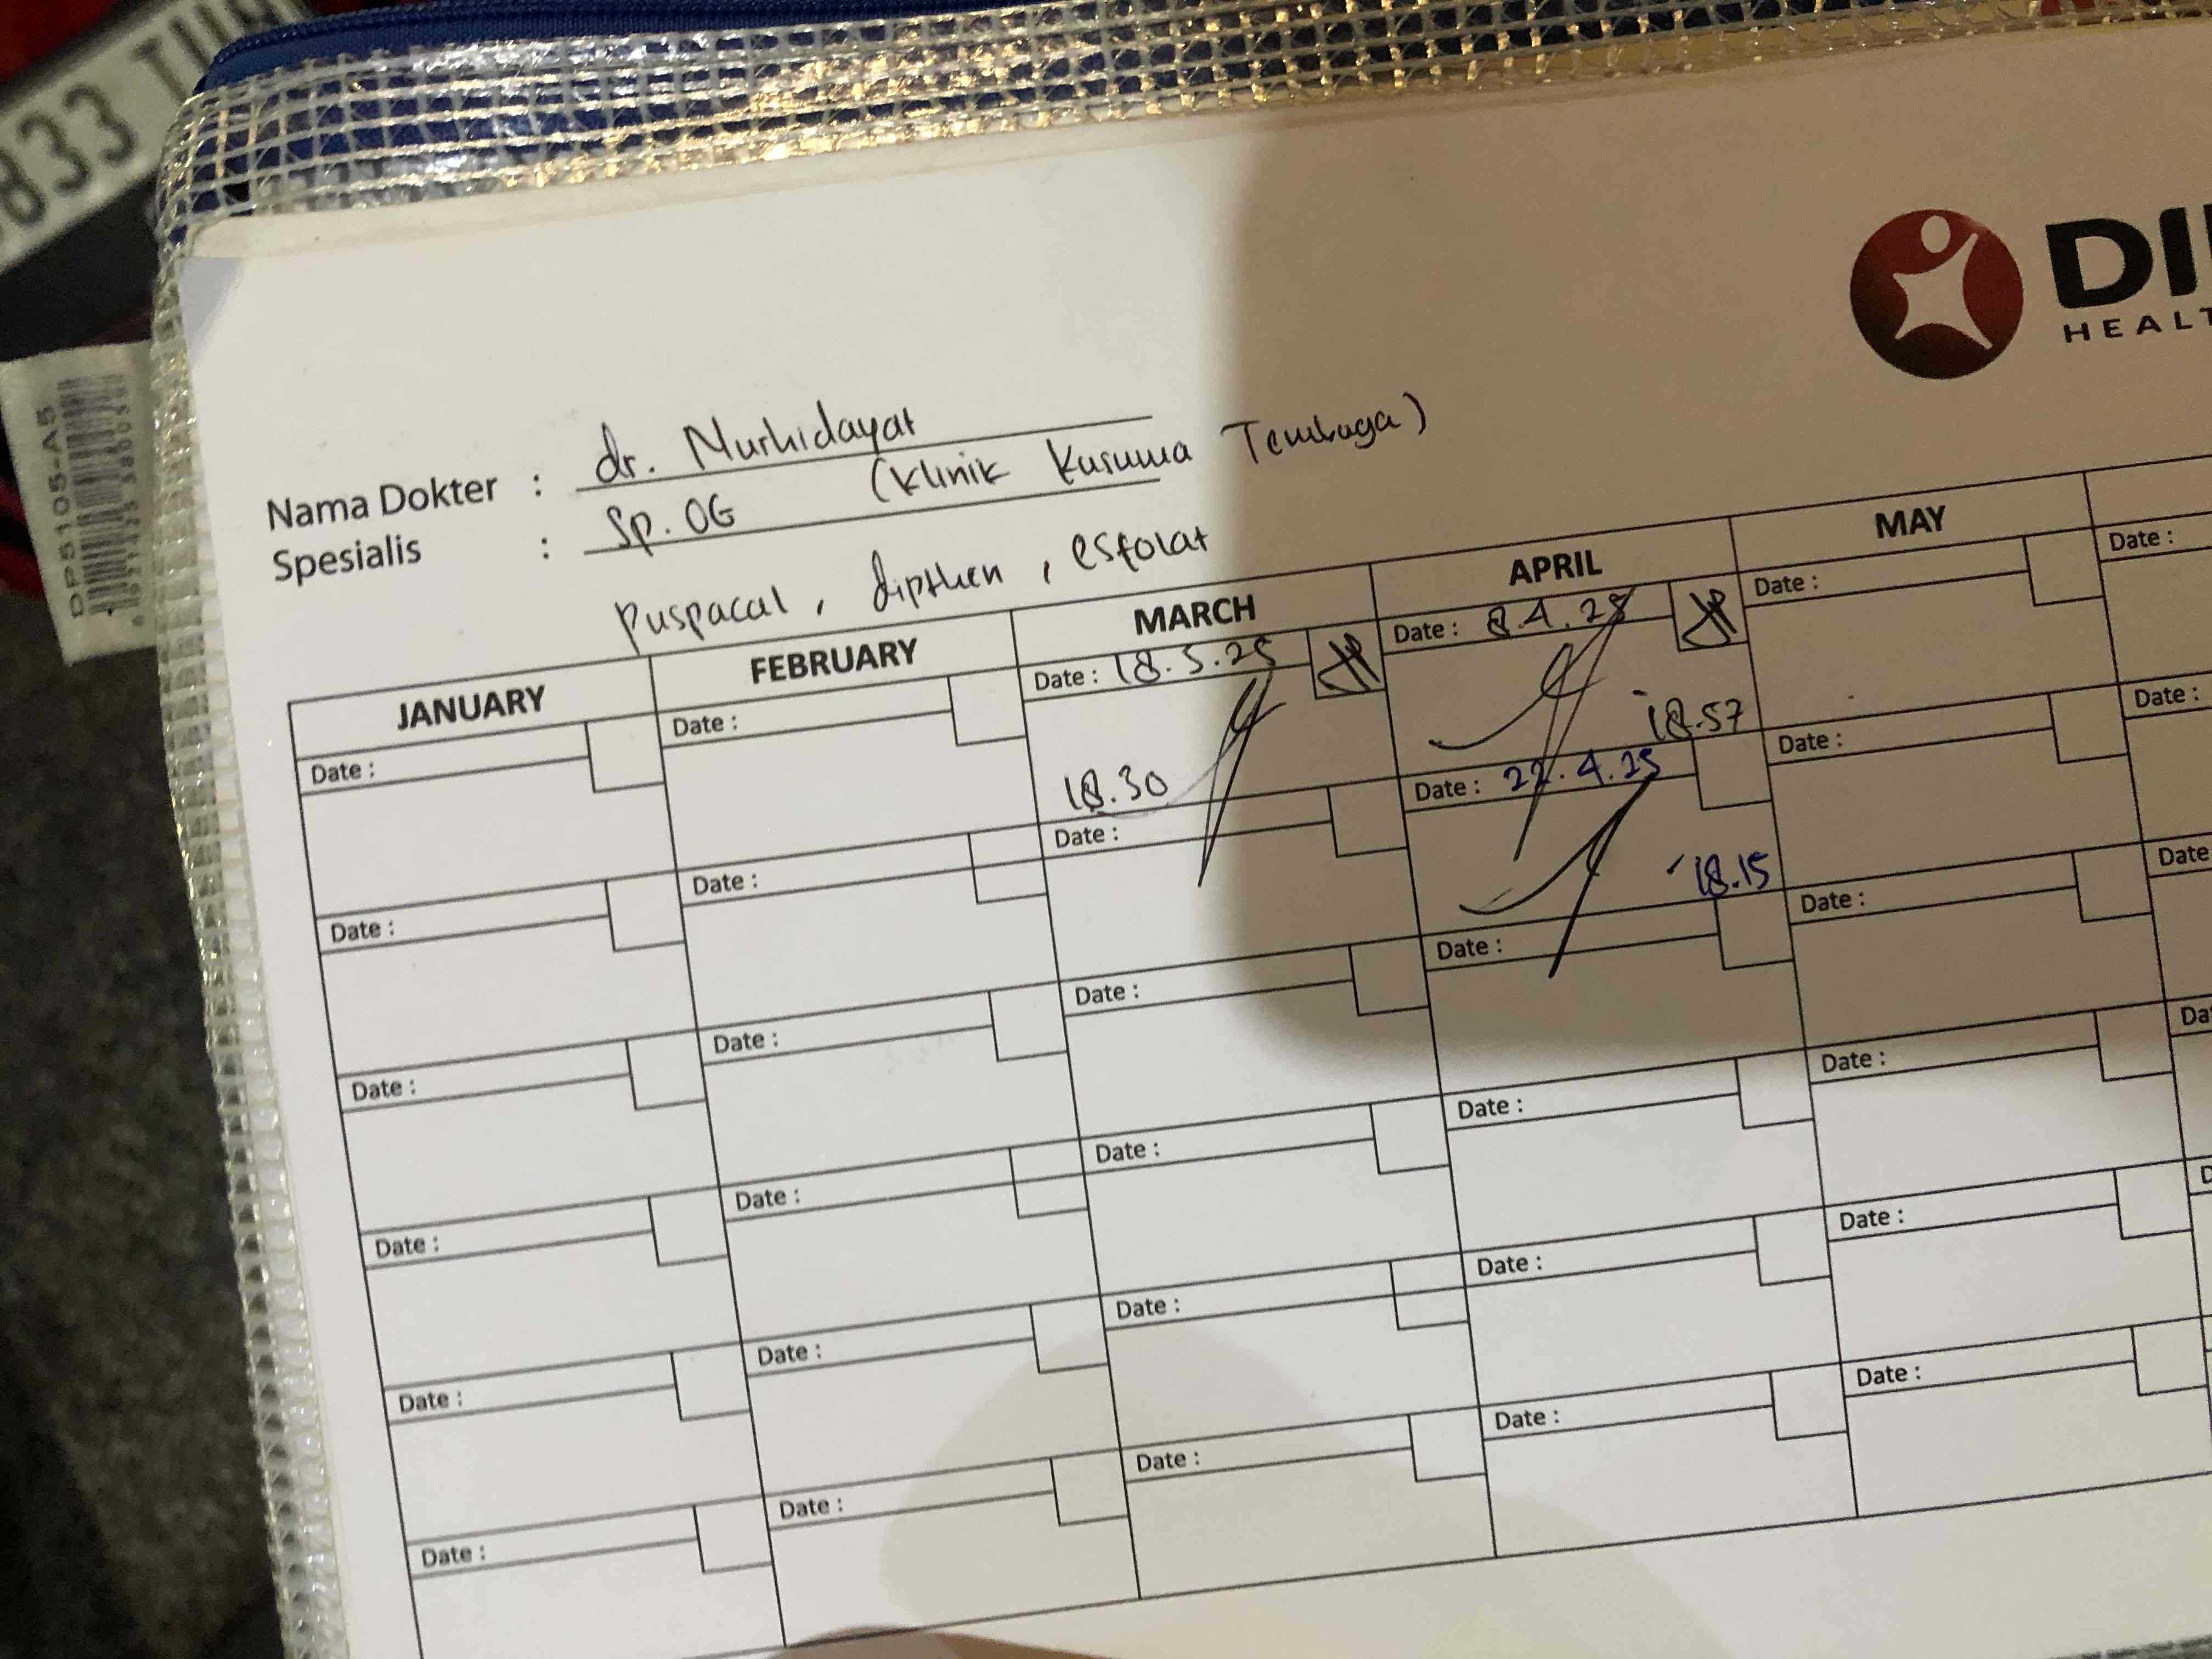 833
DP5105-A5
DI
HEALT
Nama Dokter : dr. Nurhidayat
Spesialis : Sp.OG (Klinik Kusuma Tembaga)
puspacal, dipthen, esfolat
JANUARY FEBRUARY MARCH APRIL MAY
Date : Date : Date : 18.3.25 Date : 8.4.25 Date : Date :
18.30 18.57
Date : Date : Date : Date : 22.4.25 Date : Date :
18.15
Date : Date : Date : Date : Date : Date
Date : Date : Date : Date : Date : Da
Date : Date : Date : Date : Date : D
Date : Date : Date : Date : Date :